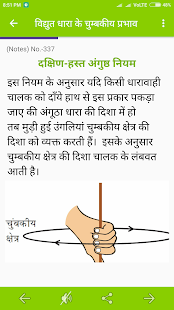 8:51 PM
VoLTE
विद्युत धारा के चुम्बकीय प्रभाव
(Notes) No.-337
दक्षिण-हस्त अंगुष्ठ नियम
इस नियम के अनुसार यदि किसी धारावाही
चालक को दाँये हाथ से इस प्रकार पकड़ा
जाए की अंगूठा धारा की दिशा में हो
तब मुड़ी हुई उंगलियां चुम्बकीय क्षेत्र की
दिशा को व्यक्त करती हैं। इसके अनुसार
चुम्बकीय क्षेत्र की दिशा चालक के लंबवत
आती है।
चुंबकीय
क्षेत्र